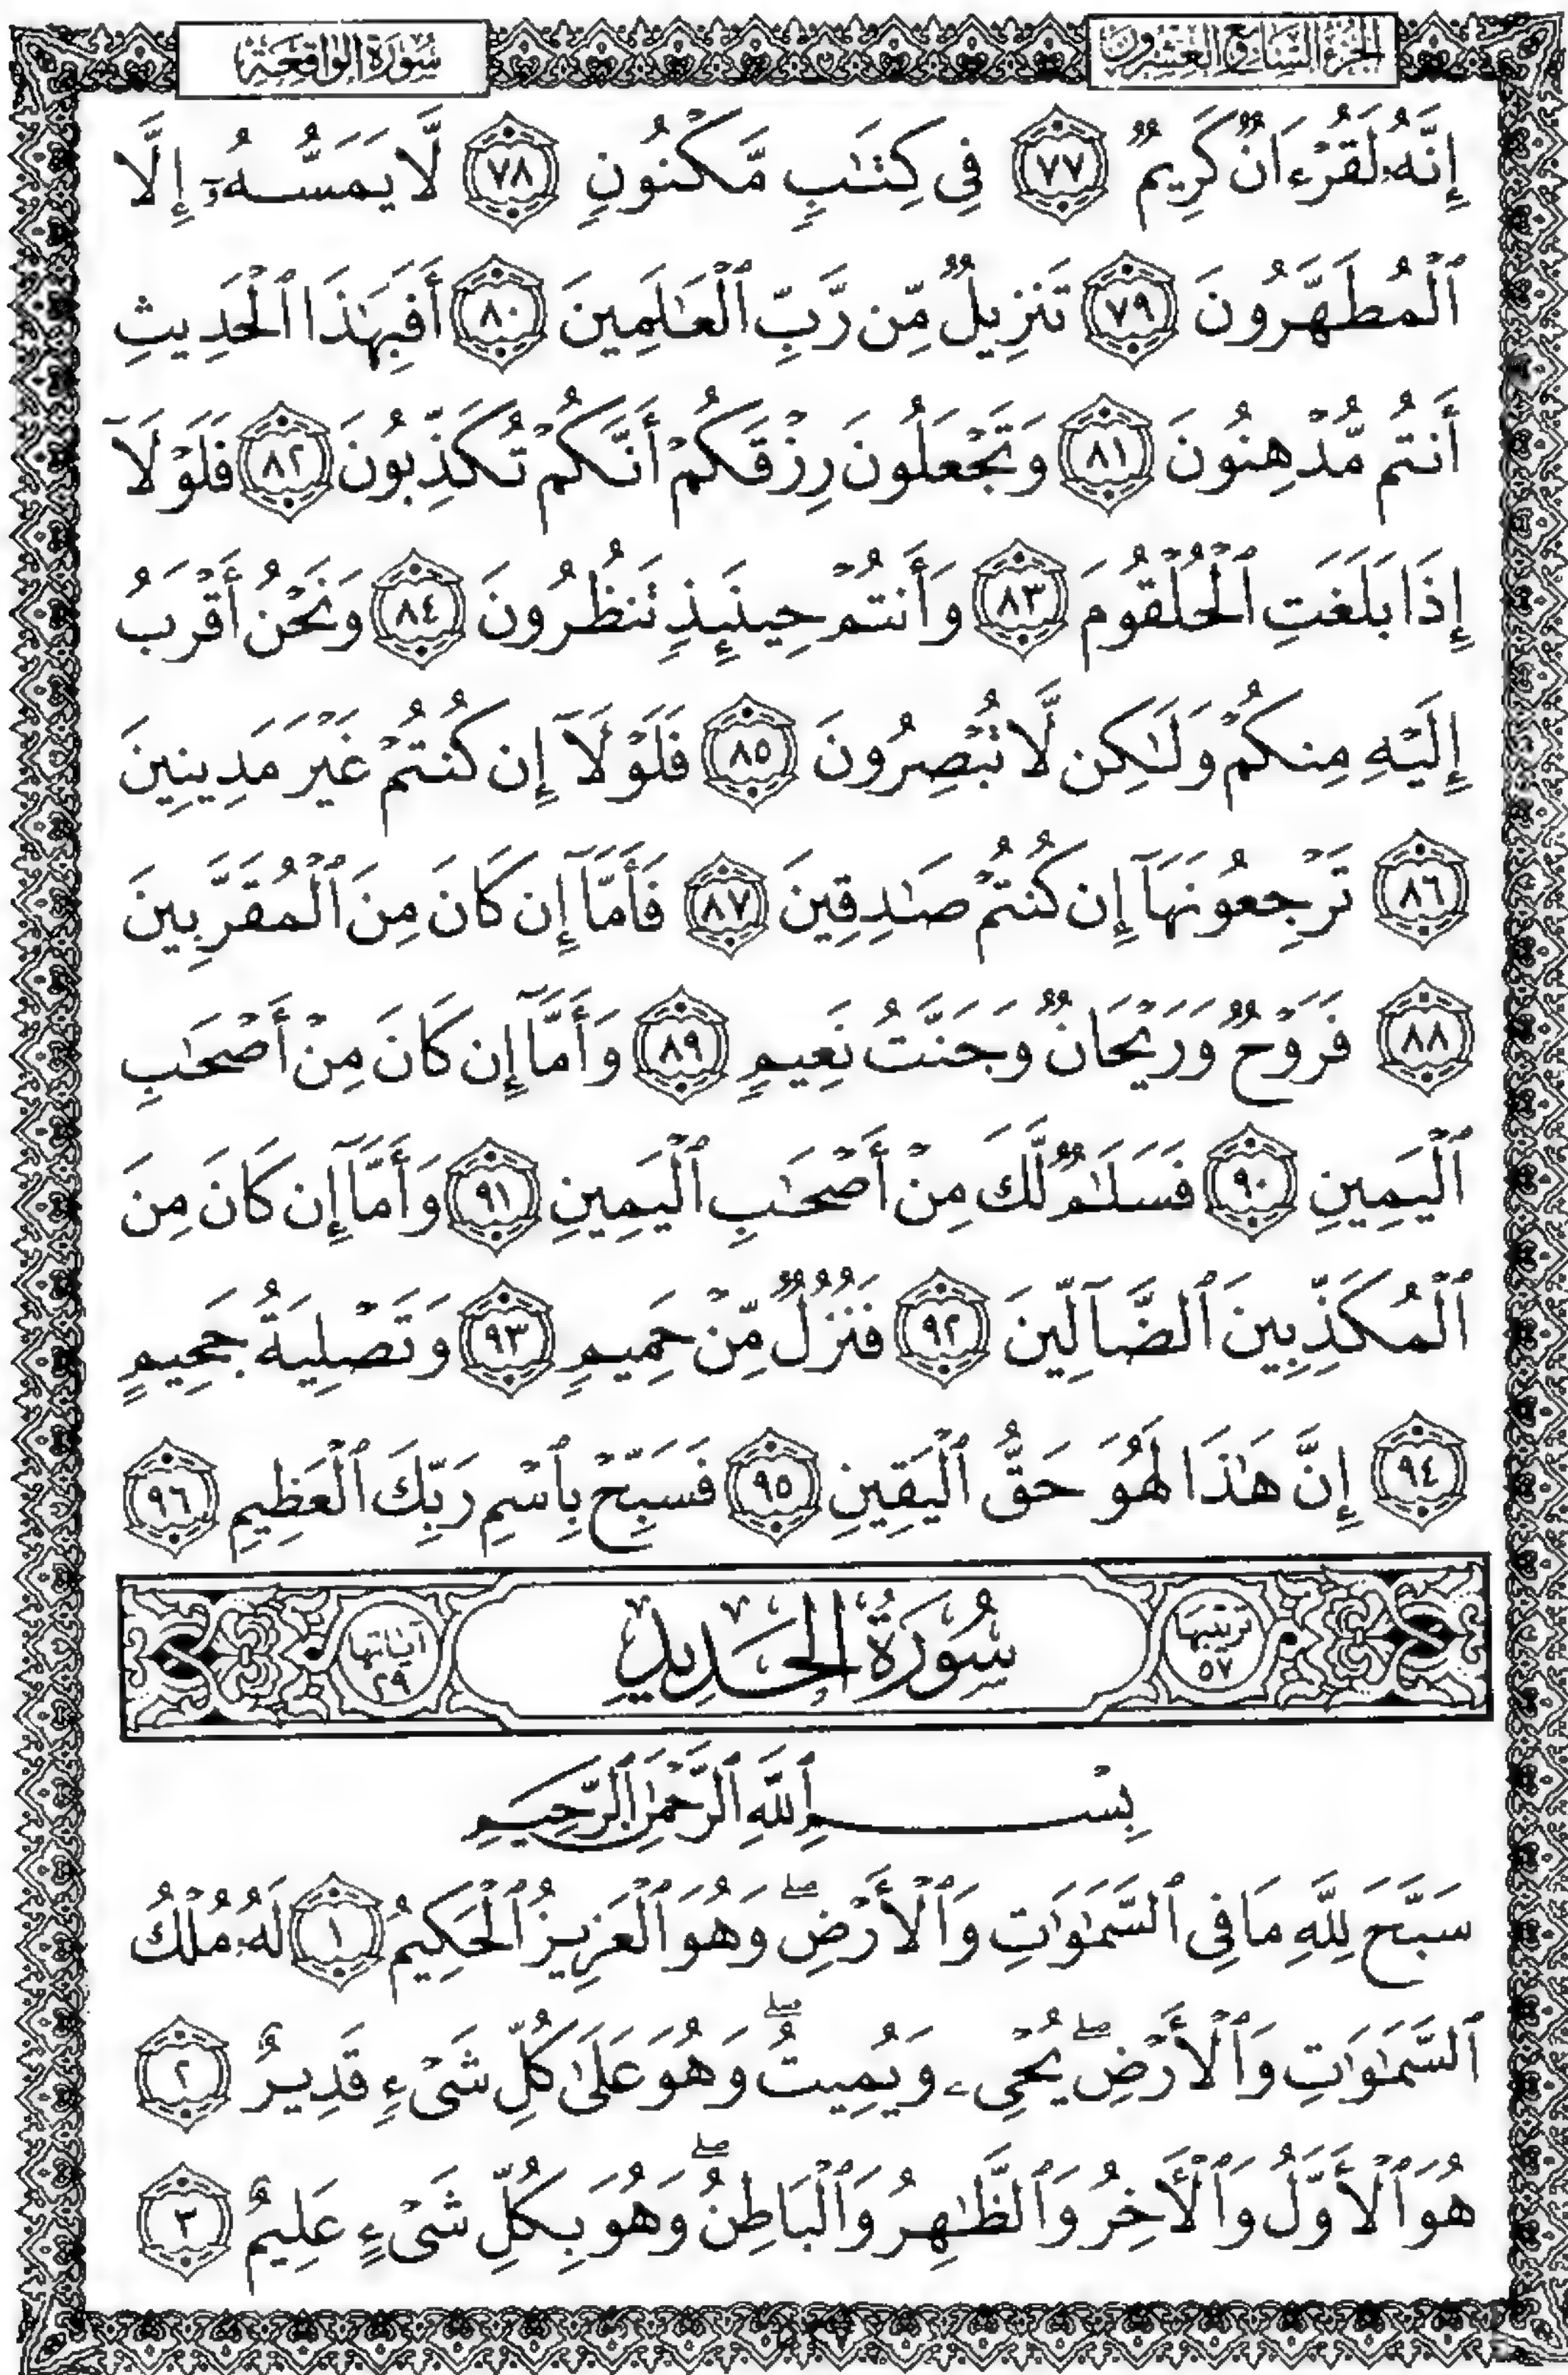 الجزء السابع والعشرون
سورة الواقعة
إِنَّهُۥ لَقُرْءَانٌ كَرِيمٌ ٧٧ فِى كِتَٰبٍ مَّكْنُونٍ ٧٨ لَّا يَمَسُّهُۥٓ إِلَّا
ٱلْمُطَهَّرُونَ ٧٩ تَنزِيلٌ مِّن رَّبِّ ٱلْعَٰلَمِينَ ٨٠ أَفَبِهَٰذَا ٱلْحَدِيثِ
أَنتُم مُّدْهِنُونَ ٨١ وَتَجْعَلُونَ رِزْقَكُمْ أَنَّكُمْ تُكَذِّبُونَ ٨٢ فَلَوْلَآ
إِذَا بَلَغَتِ ٱلْحُلْقُومَ ٨٣ وَأَنتُمْ حِينَئِذٍ تَنظُرُونَ ٨٤ وَنَحْنُ أَقْرَبُ
إِلَيْهِ مِنكُمْ وَلَٰكِن لَّا تُبْصِرُونَ ٨٥ فَلَوْلَآ إِن كُنتُمْ غَيْرَ مَدِينِينَ
٨٦ تَرْجِعُونَهَآ إِن كُنتُمْ صَٰدِقِينَ ٨٧ فَأَمَّآ إِن كَانَ مِنَ ٱلْمُقَرَّبِينَ
٨٨ فَرَوْحٌ وَرَيْحَانٌ وَجَنَّتُ نَعِيمٍ ٨٩ وَأَمَّآ إِن كَانَ مِنْ أَصْحَٰبِ
ٱلْيَمِينِ ٩٠ فَسَلَٰمٌ لَّكَ مِنْ أَصْحَٰبِ ٱلْيَمِينِ ٩١ وَأَمَّآ إِن كَانَ مِنَ
ٱلْمُكَذِّبِينَ ٱلضَّآلِّينَ ٩٢ فَنُزُلٌ مِّنْ حَمِيمٍ ٩٣ وَتَصْلِيَةُ جَحِيمٍ
٩٤ إِنَّ هَٰذَا لَهُوَ حَقُّ ٱلْيَقِينِ ٩٥ فَسَبِّحْ بِٱسْمِ رَبِّكَ ٱلْعَظِيمِ ٩٦
ترتيبها ٥٧
سُورَةُ الحَدِيدِ
آياتها ٢٩
بِسْمِ ٱللَّهِ ٱلرَّحْمَٰنِ ٱلرَّحِيمِ
سَبَّحَ لِلَّهِ مَا فِى ٱلسَّمَٰوَٰتِ وَٱلْأَرْضِ ۖ وَهُوَ ٱلْعَزِيزُ ٱلْحَكِيمُ ١ لَهُۥ مُلْكُ
ٱلسَّمَٰوَٰتِ وَٱلْأَرْضِ ۖ يُحْىِۦ وَيُمِيتُ ۖ وَهُوَ عَلَىٰ كُلِّ شَىْءٍ قَدِيرٌ ٢
هُوَ ٱلْأَوَّلُ وَٱلْءَاخِرُ وَٱلظَّٰهِرُ وَٱلْبَاطِنُ ۖ وَهُوَ بِكُلِّ شَىْءٍ عَلِيمٌ ٣